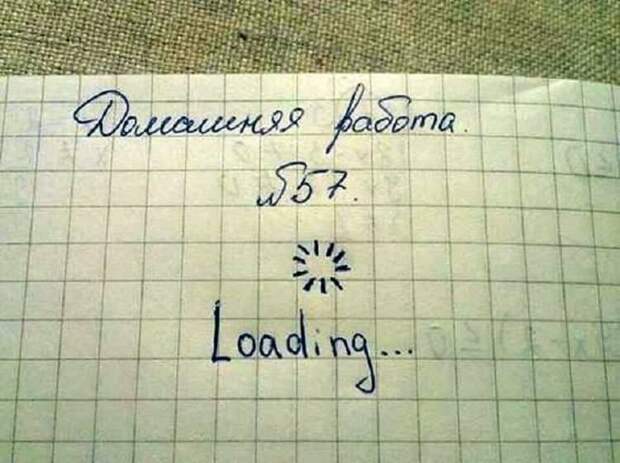 Домашняя работа.
№57.
Loading...